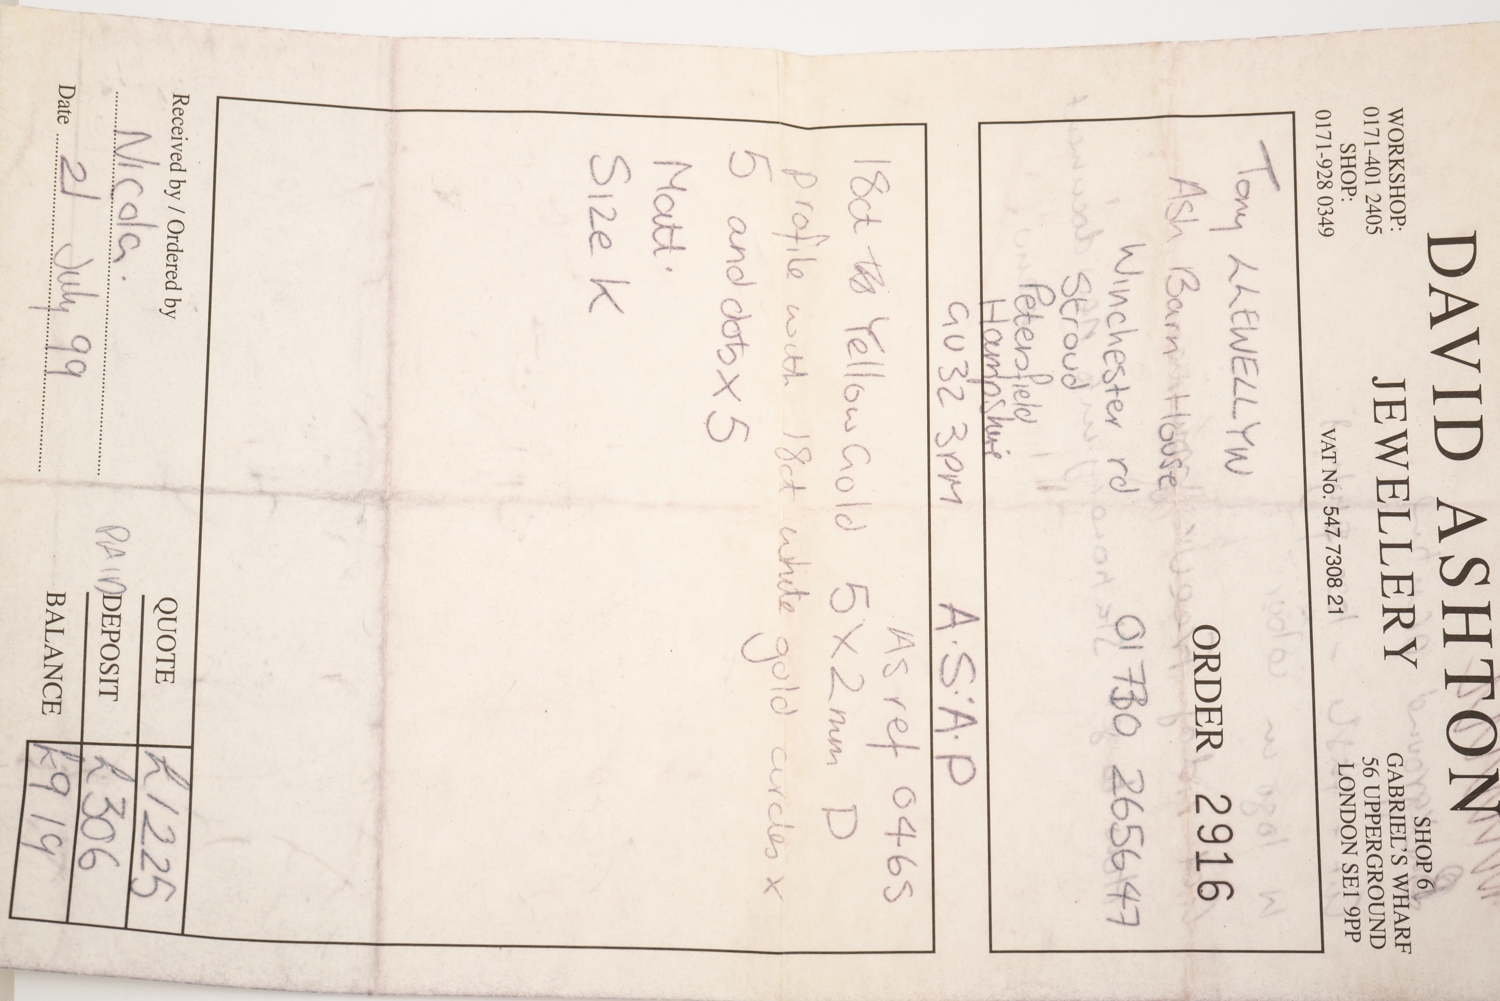 DAVID ASHTON
JEWELLERY
WORKSHOP:
0171-401 2405
SHOP:
0171-928 0349
VAT No. 547 7308 21
SHOP 6
GABRIEL'S WHARF
56 UPPERGROUND
LONDON SE1 9PP
ORDER 2916
Tony LLEWELLYN
Ash Barn House
Winchester rd
Stroud
Petersfield
Hampshire
GU32 3PM
01730 265647
A.S.A.P
As ref 0465
18ct Yellow Gold 5 x 2mm D
profile with 18ct white gold circles x
5 and dots x 5
Matt.
Size K
Received by / Ordered by
Nicola.
Date 21 July 99
QUOTE £1225
PAID DEPOSIT £306
BALANCE £919